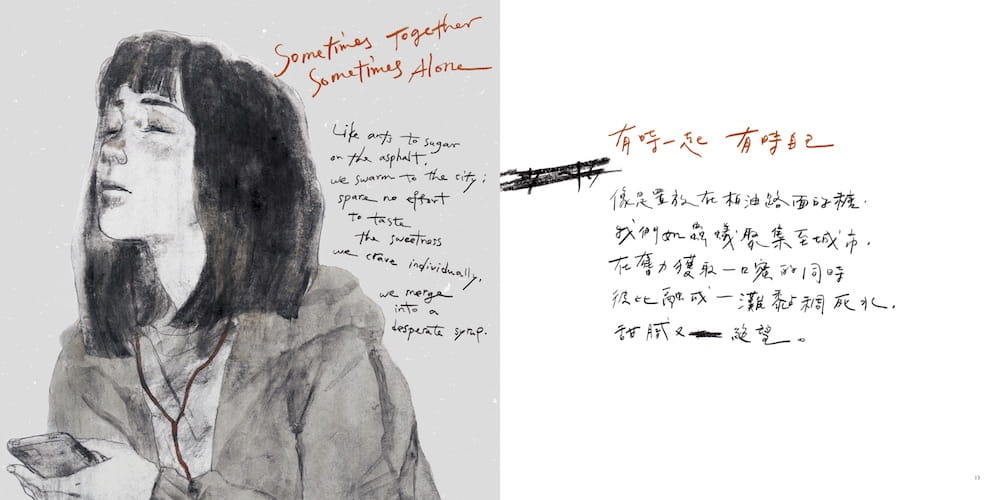 Sometimes Together
Sometimes Alone
Like ants to sugar
on the asphalt,
we swarm to the city;
spare no effort
to taste
the sweetness
we crave individually,
we merge
into a
desperate syrup.
有時一起 有時自己
像是置放在柏油路面的糖,
我們如蟲蟻聚集至城市,
在奮力獲取一口蜜的同時
彼此融成一灘黏稠死水,
甜膩又絕望。
13